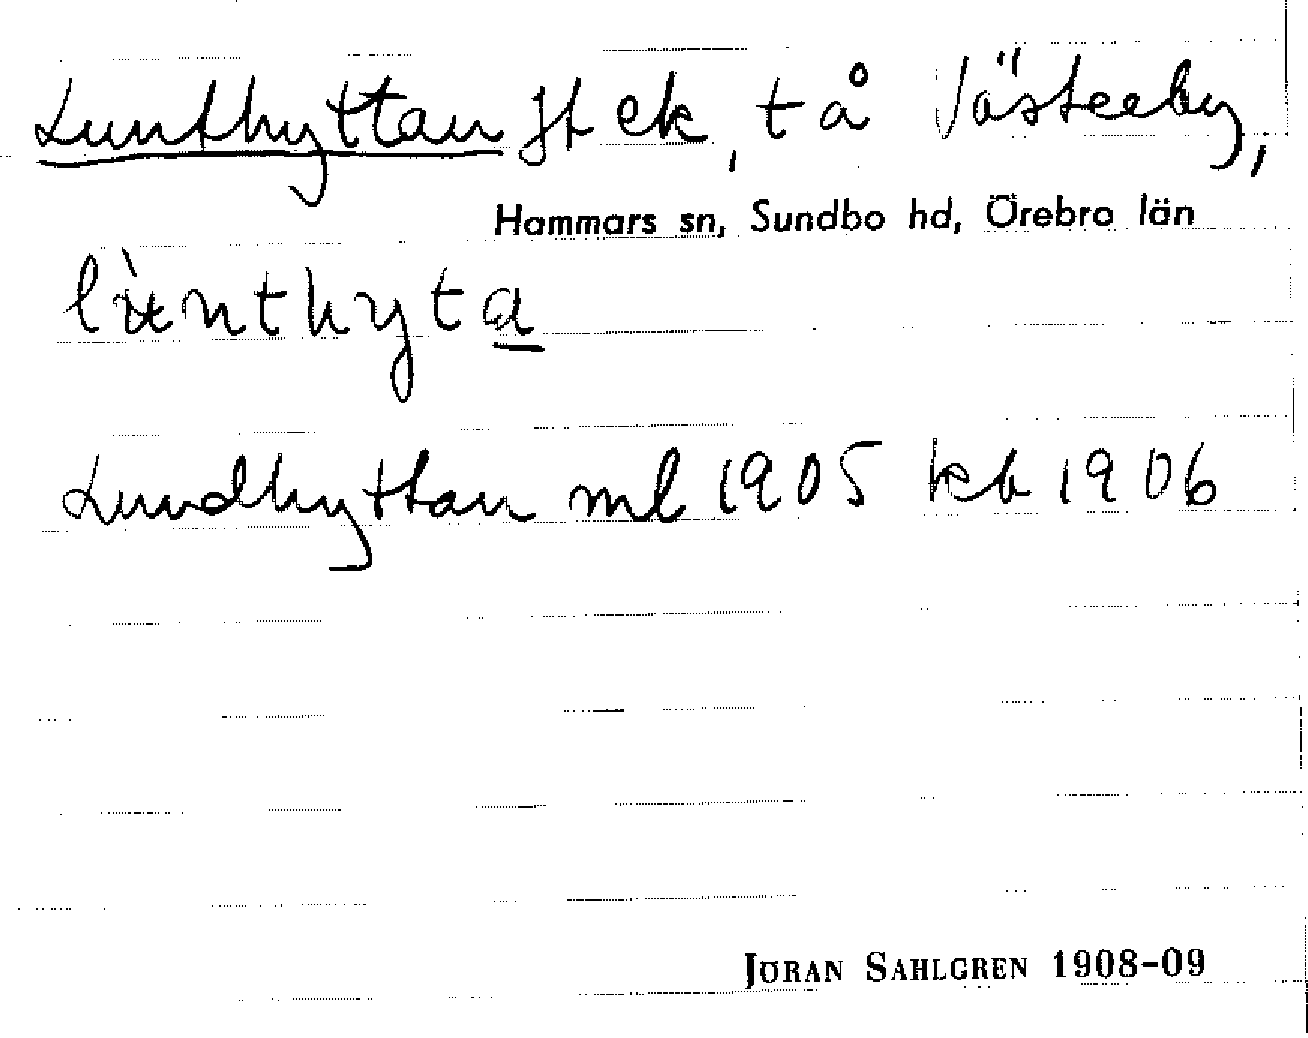 Lunthyttan ft ek, tå Västeeby,
Hammars sn, Sundbo hd, Örebro län
lùnthyta
Lundhyttan ml 1905 kb 1906
JÖRAN SAHLGREN 1908-09